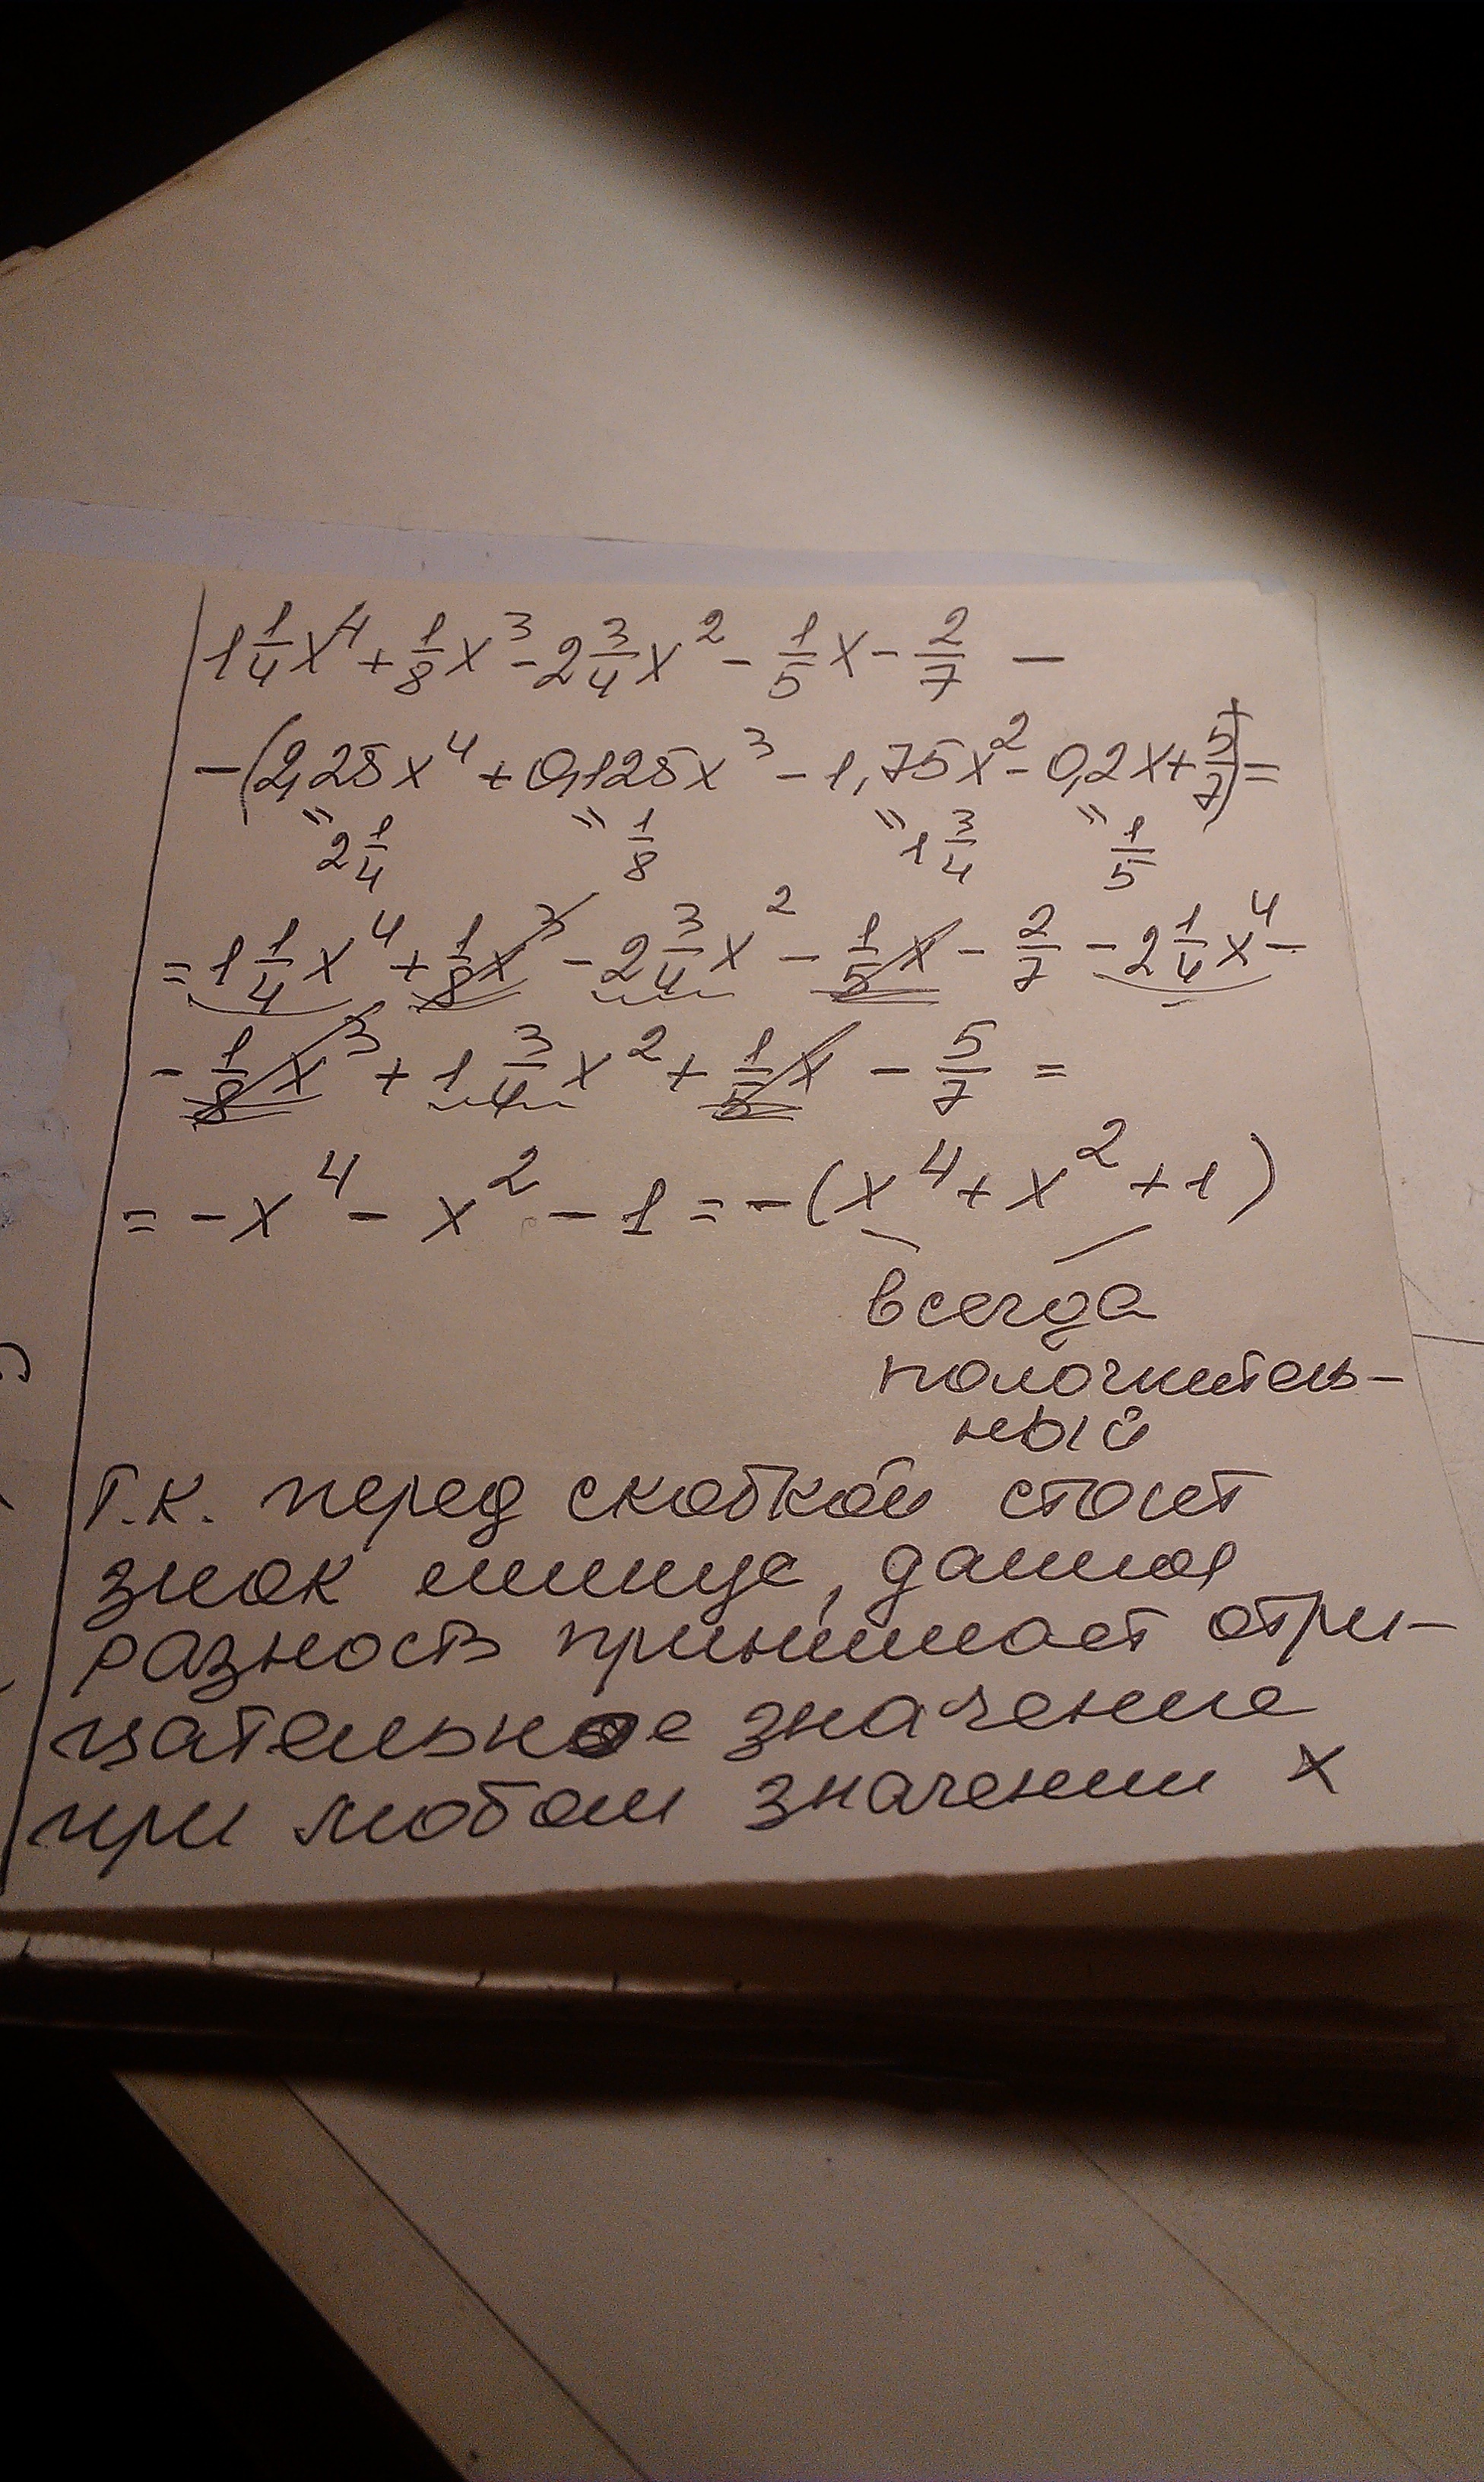 1 1/4 x⁴ + 1/8 x³ - 2 3/4 x² - 1/5 x - 2/7 -
- (2,25x⁴ + 0,125x³ - 1,75x² - 0,2x + 5/7) =
" 2 1/4 " 1/8 " 1 3/4 " 1/5
= 1 1/4 x⁴ + 1/8 x³ - 2 3/4 x² - 1/5 x - 2/7 - 2 1/4 x⁴ -
- 1/8 x³ + 1 3/4 x² + 1/5 x - 5/7 =
= - x⁴ - x² - 1 = - (x⁴ + x² + 1)
всегда
положитель-
ный
Т.к. перед скобкой стоит
знак минус, данная
разность принимает отри-
цательное значение
при любом значении x